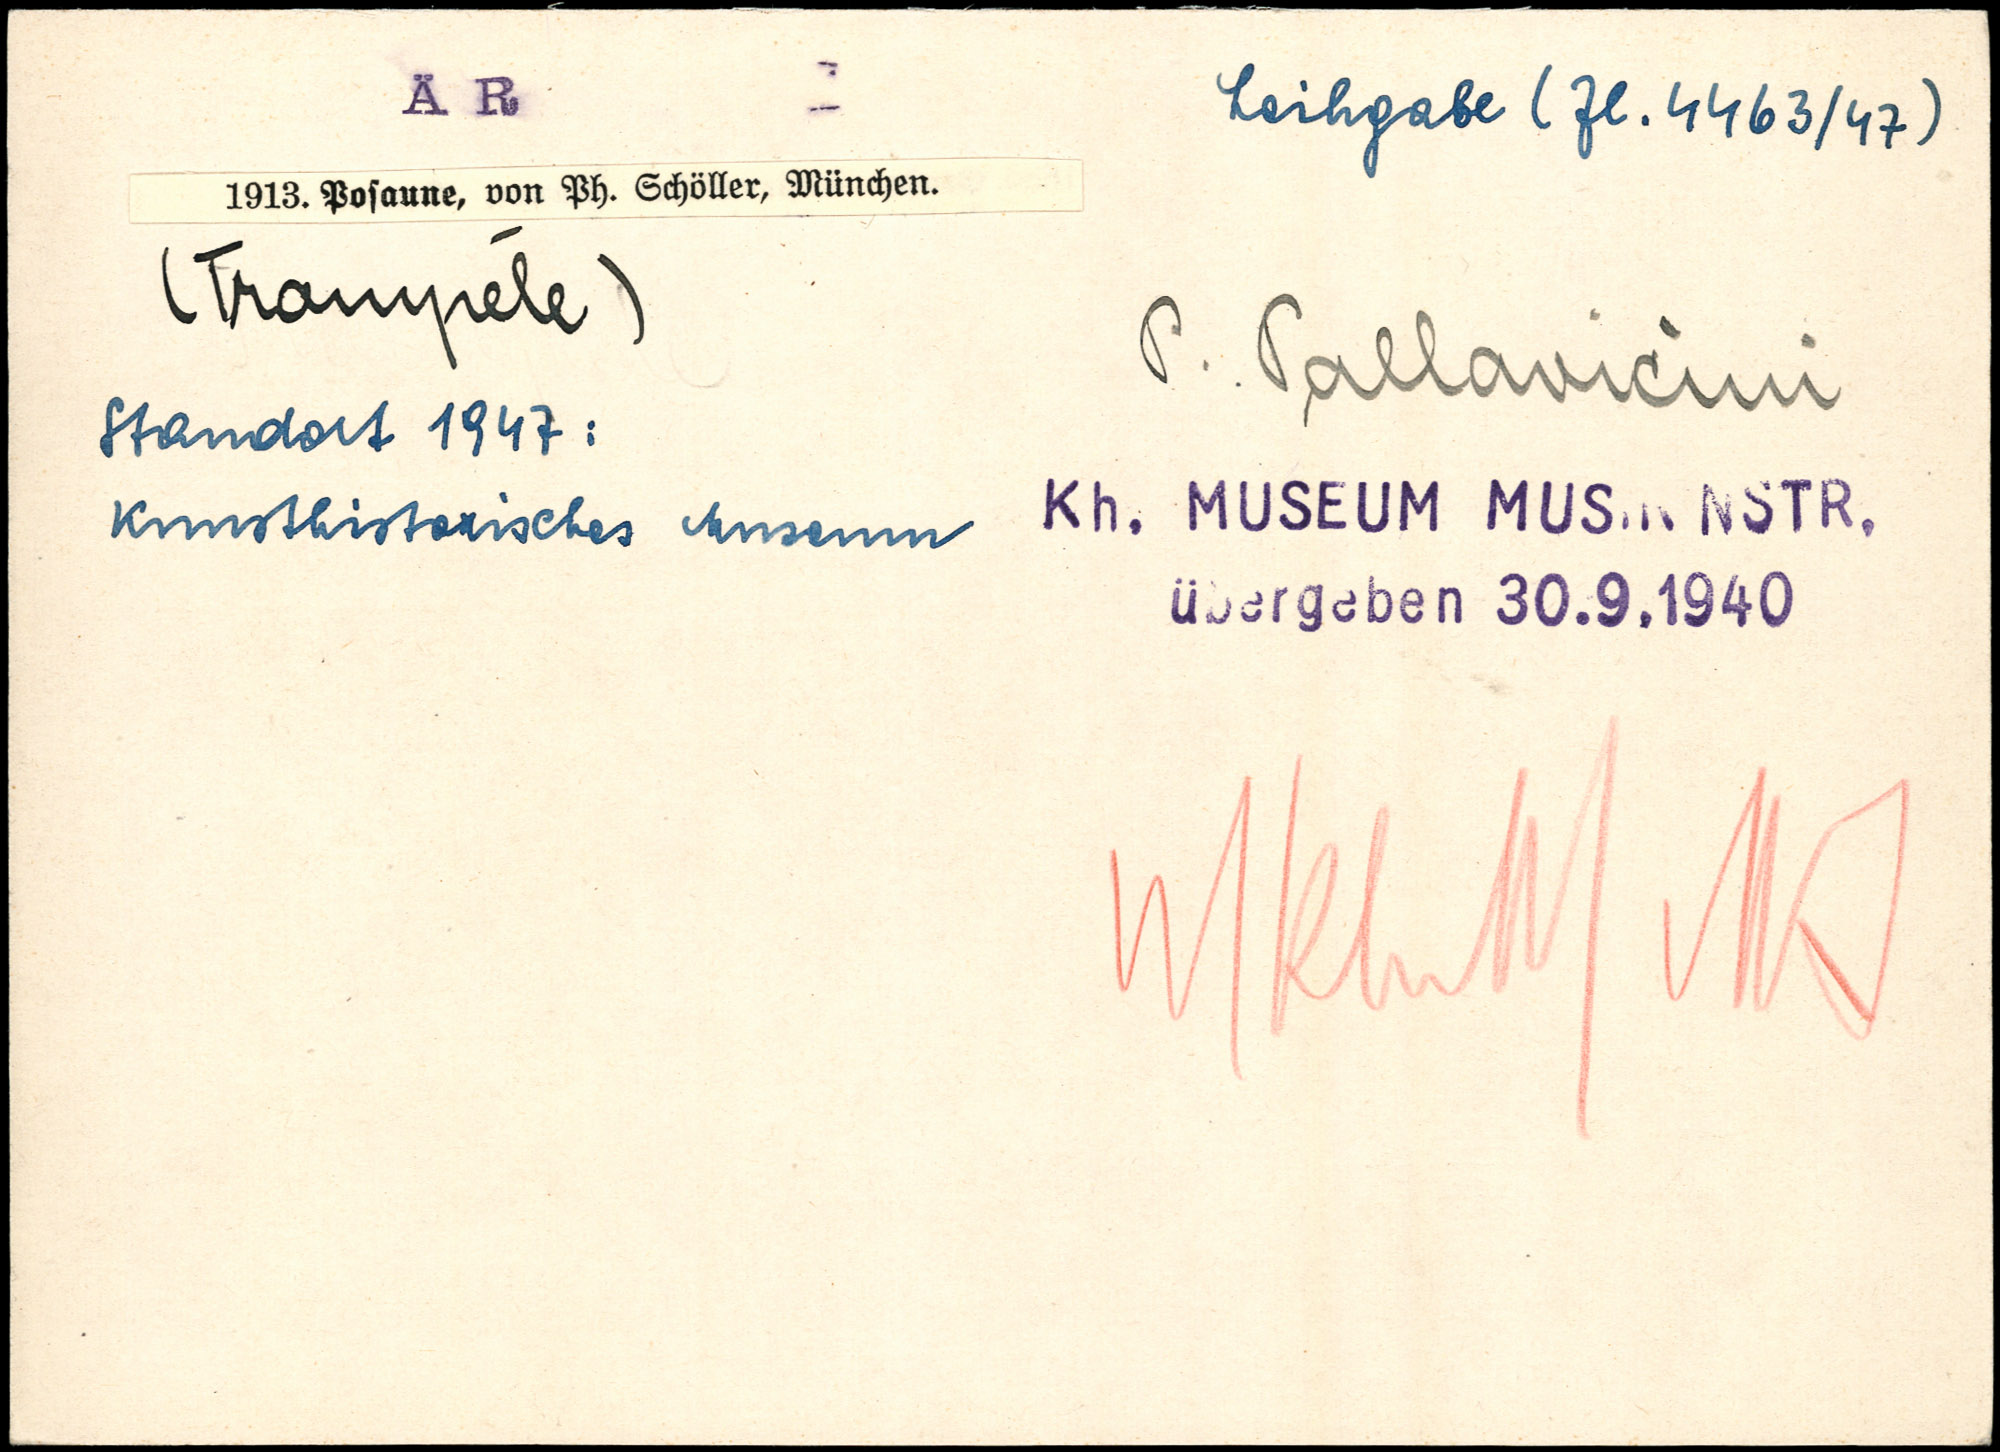 ÄR
Leihgabe (Zl. 4463/47)
1913. Posaune, von Ph. Schöller, München.
(Trompete)
P. Pallavicini
Standort 1947:
Kunsthistorisches Museum
Kh. MUSEUM MUSIKINSTR.
übergeben 30.9.1940